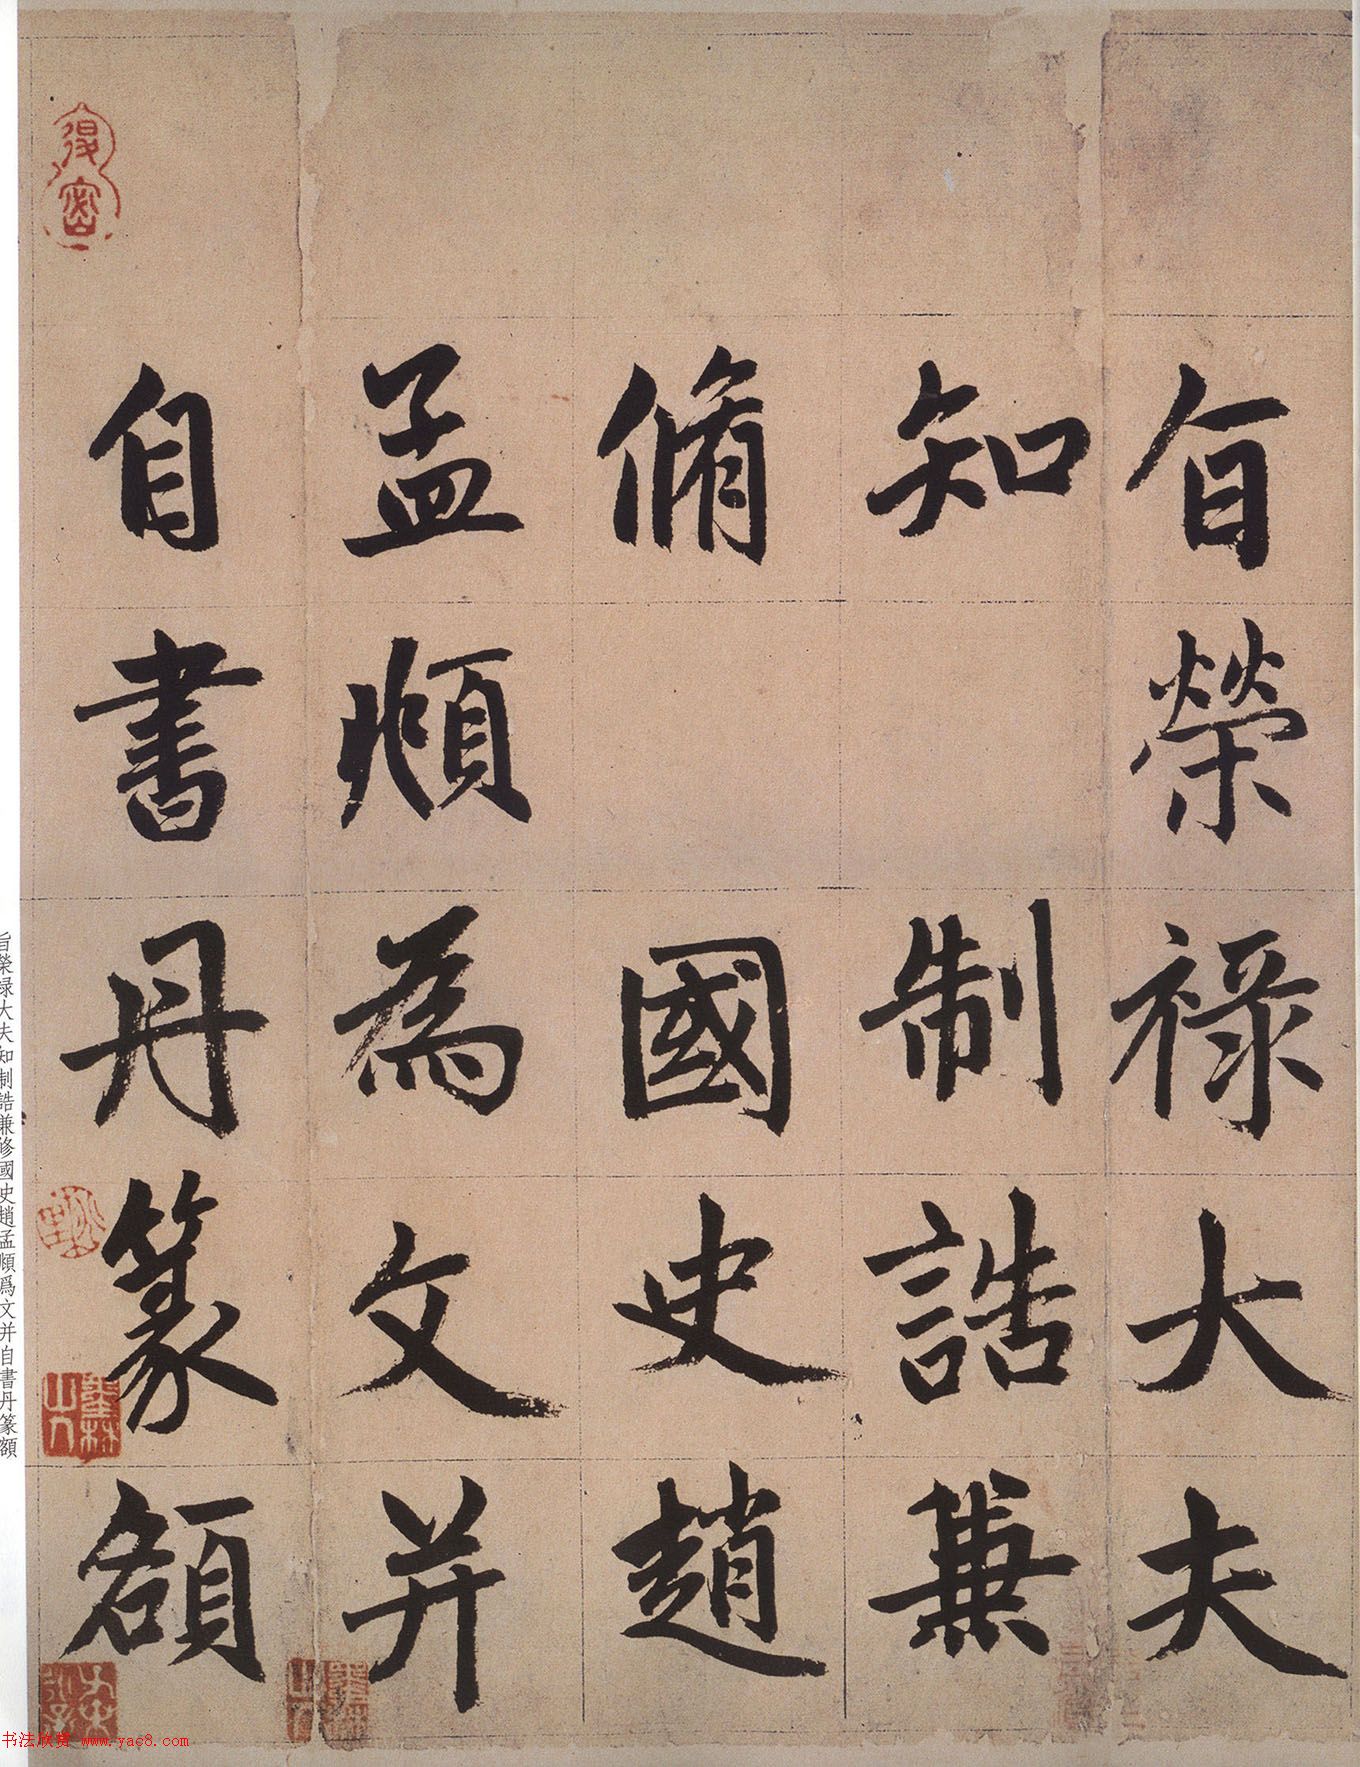 旨榮禄大夫
知制誥兼
脩國史趙
孟頫為文并
自書丹篆額
旨榮禄大夫知制誥兼修國史趙孟頫爲文并自書丹篆額
书法欣赏 www.yac8.com